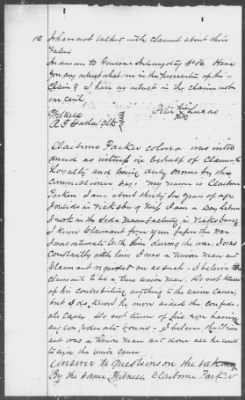 10 I have not talked with claimant about this
value
In answer to General Interrogatory No 16 Have
you any interest whatever in the prosecution of this
claim I have no interest in the claim not
one cent
his
Lucas
mark
Witness
Claiborne Parker colored was intro
duced as witness in behalf of Claimant's
Loyalty and being duly sworn by the
Commissioner says: My name is Claiborne
Parker I am about thirty six years of age
I reside in Vicksburg Miss I am a Day laborer
I work in the Soda Manufactory in Vicksburg
I knew Claimant for years before the war
I was intimate with him during the war I was
Constantly with him I was a Union man and
Claimant regarded me as such I believe the
claimant to be a true union man I do not know
of his contributing anything to the union cause
but I do know he never aided the confede
rate cause I do not know of his ever having
any confederate bonds I believe he
was a Union man and done all he could
to aid the union cause
Answer to Questions on the
By the same Witness Claiborne Parker